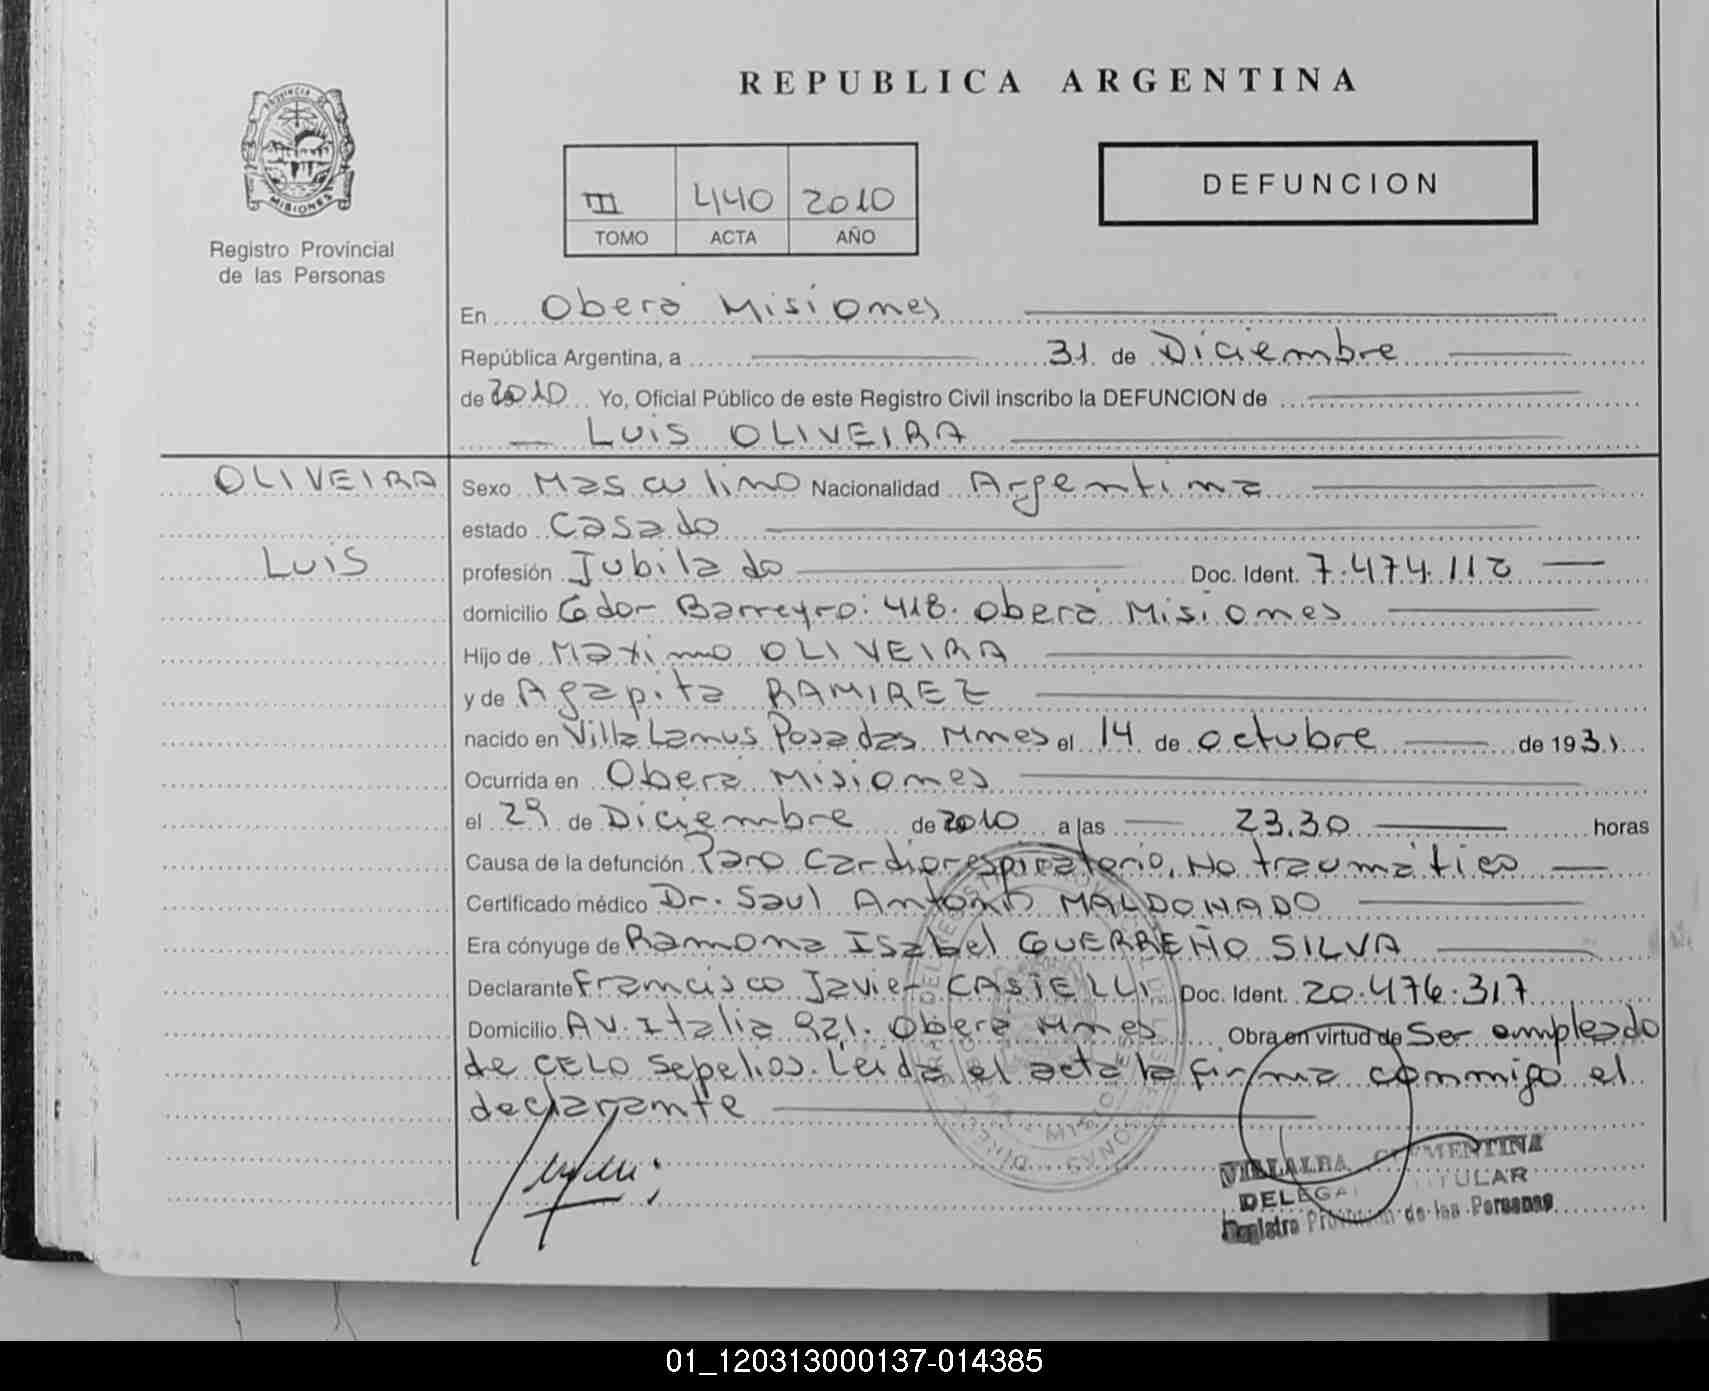 REPUBLICA ARGENTINA
PROVINCIA DE
MISIONES
Registro Provincial
de las Personas
III 440 2010
TOMO ACTA AÑO
DEFUNCION
En Oberá Misiones
República Argentina, a 31 de Diciembre
de 2010 Yo, Oficial Público de este Registro Civil inscribo la DEFUNCION de
LUIS OLIVEIRA
OLIVEIRA
LUIS
Sexo Masculino Nacionalidad Argentina
estado Casado
profesión Jubilado Doc. Ident. 7.474.112
domicilio Gdor Barreyro: 418. Oberá Misiones
Hijo de Maximo OLIVEIRA
y de Agapita RAMIREZ
nacido en Villa Lanus Posadas Mnes el 14 de octubre de 1931
Ocurrida en Oberá Misiones
el 29 de Diciembre de 2010 a las 23.30 horas
Causa de la defunción Paro Cardiorespiratorio, No traumático
Certificado médico Dr. Saul Antonio MALDONADO
Era cónyuge de Ramona Isabel GUERREÑO SILVA
Declarante Francisco Javier CASIELLI Doc. Ident. 20.476.317
Domicilio AV. Italia 921. Oberá Mnes Obra en virtud de Ser empleado
de CELO Sepelios. Leida el acta la firma conmigo el
declarante
VILLALBA CLEMENTINA
DELEGADA TITULAR
Registro Provincial de las Personas
01_120313000137-014385